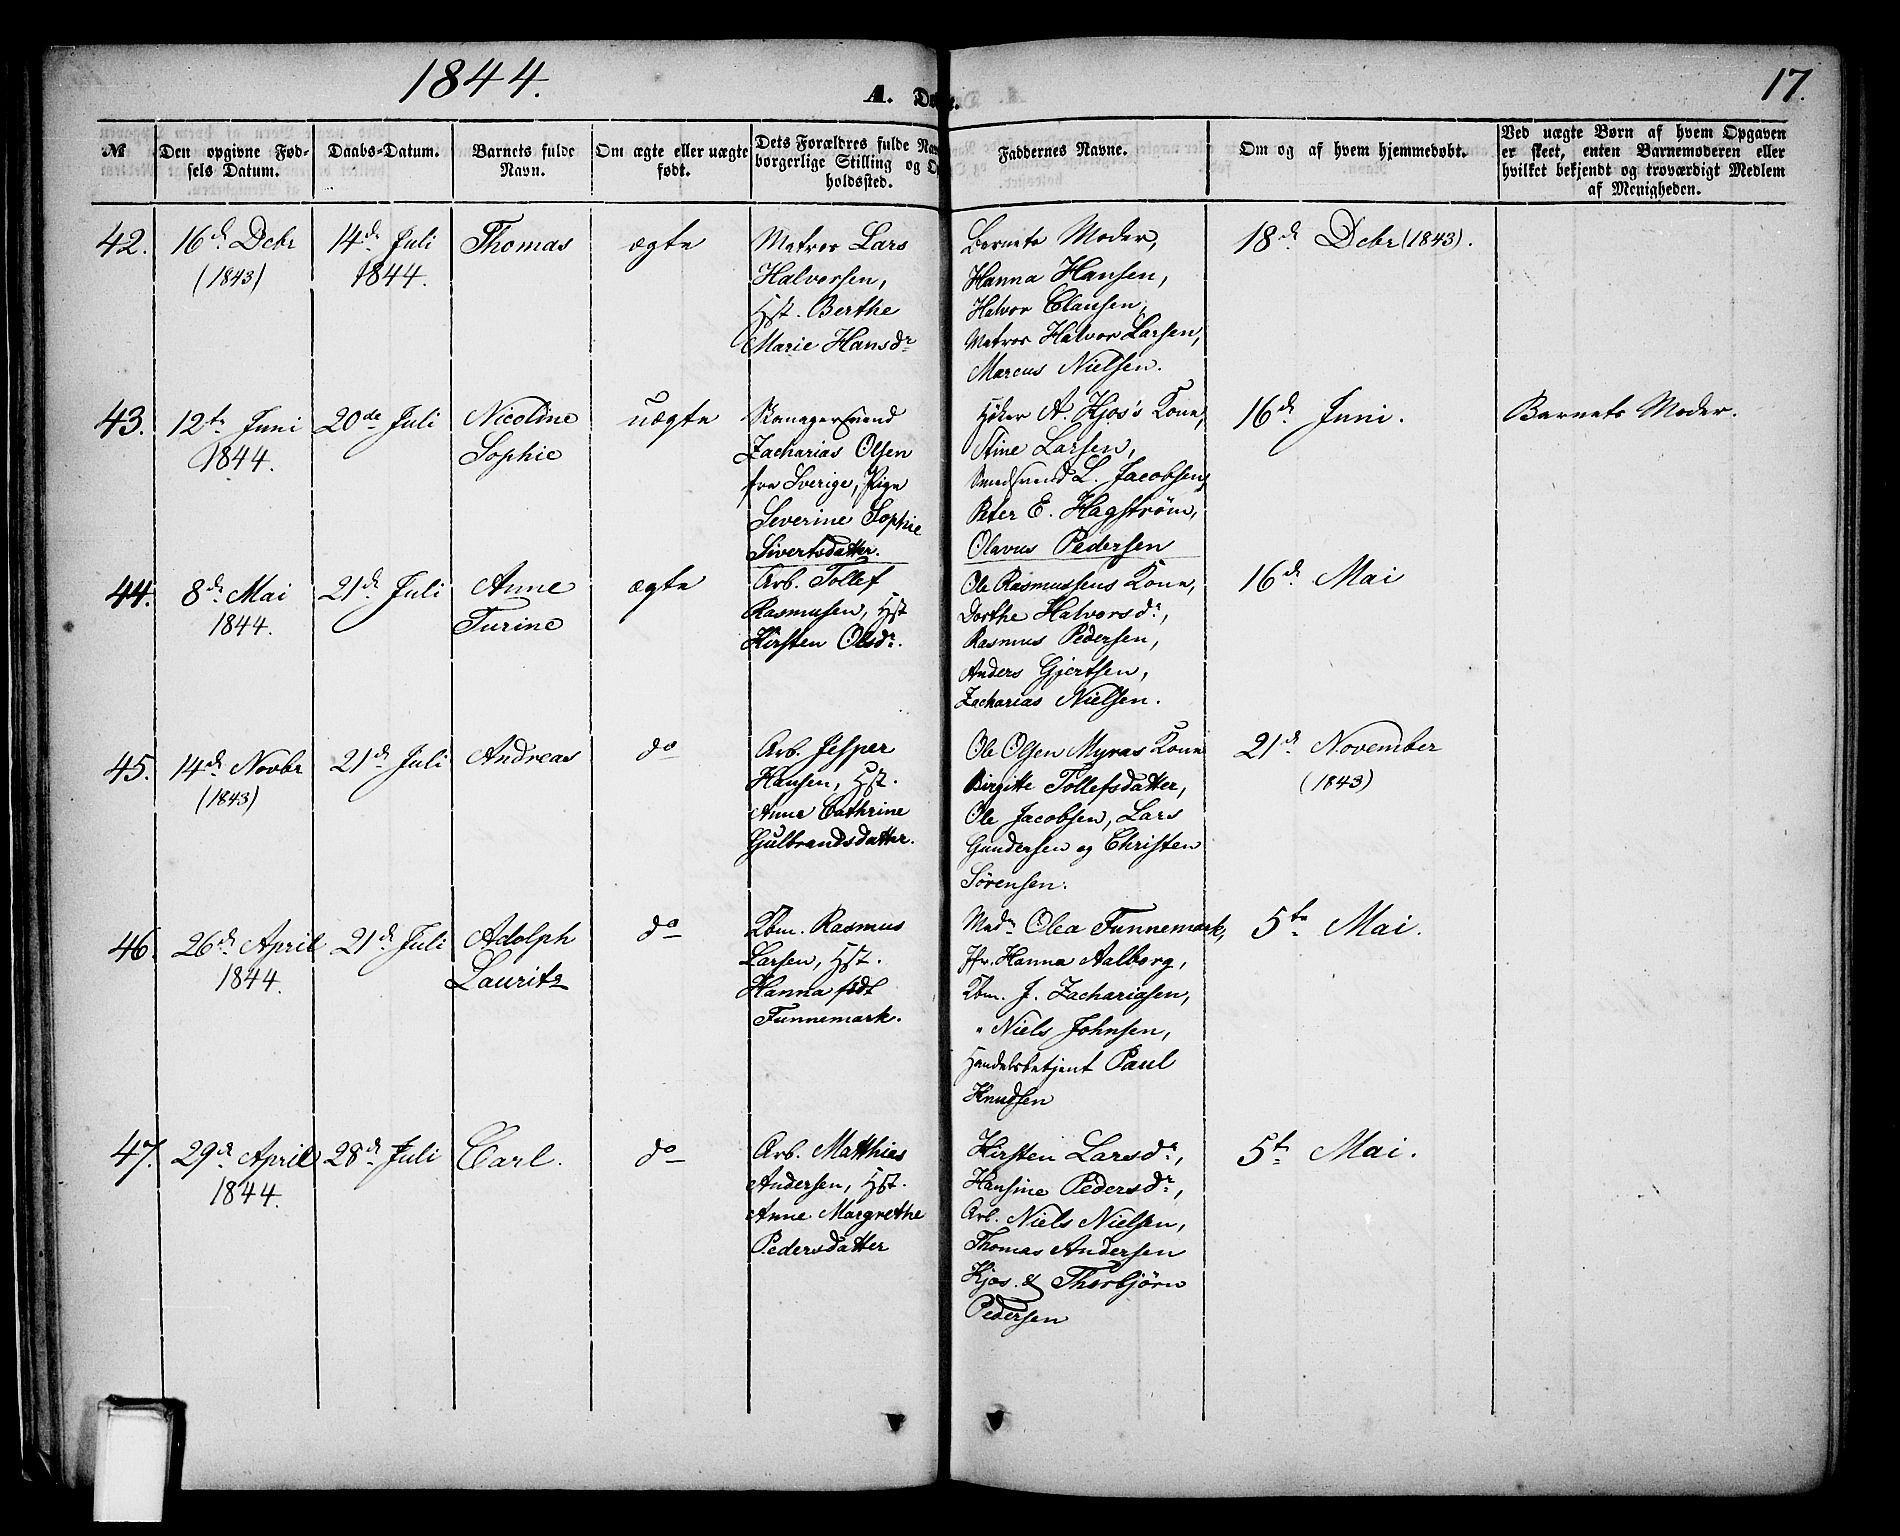 1844.
A. Døbte.
17.
№
Den opgivne Fød-
sels Datum.
Daabs-Datum.
Barnets fulde
Navn.
Om ægte eller uægte
født.
Dets Forældres fulde
borgerlige Stilling og
holdssted.
Faddernes Navne.
Om og af hvem hjemmedøbt.
Ved uægte Børn af hvem Opgaven
er skeet, enten Barnemoderen eller
hvilket bekjendt og troværdigt Medlem
af Menigheden.
42.
16de Debr
(1843)
14de Juli
1844.
Thomas
ægte
Matros Lars
Halvorsen,
Hst. Berthe
Marie Hansdr
Barnets Moder,
Hanna Hansen,
Halvor Clausen,
Matros Halvor Larsen,
Marcus Nielsen.
18de Debr (1843).
43.
12te Juni
1844.
20de Juli
Nicoline
Sophie
uægte
Zacharias Olsen
fra Sverige, Pige
Severine Sophie
Sivertsdatter.
Høker A Kjos's Kone,
Stine Larsen,
L. Jacobsen,
Peter E. Hagstrøm,
Olavus Pedersen
16de Juni.
Barnets Moder.
44.
8de Mai
1844.
21de Juli
Anne
Turine
ægte
Arb. Tollef
Rasmusen, Hst
Kirsten Olsdr.
Ole Rasmussens Kone,
Dorthe Halvorsdr,
Rasmus Pedersen,
Anders Gjertsen,
Zacharias Nielsen.
16de Mai
45.
14de Novbr
(1843)
21de Juli
Andreas
do
Arb. Jesper
Hansen, Hst.
Anne Cathrine
Gulbrandsdatter.
Ole Olsen Myras Kone
Birgitte Tollefsdatter,
Ole Jacobsen, Lars
Gundersen og Christen
Sörensen.
21de November
(1843)
46.
26de April
1844.
21de Juli
Adolph
Lauritz
do
Kbm. Rasmus
Larsen, Hst.
Hanna født
Funnemark.
Mad. Olea Funnemark,
Jfr. Hanna Aalborg,
Kbm. J. Zachariasen,
" Niels Johnsen,
Handelsbetjent Paul
Knudsen
5te Mai.
47.
29de April
1844.
28de Juli
Carl.
do
Arb. Matthias
Andersen, Hst.
Anne Margrethe
Pedersdatter
Kirsten Larsdr,
Hansine Pedersdr,
Arb. Niels Nielsen,
Thomas Andersen
Kjos. & Thorbjörn
Pedersen
5te Mai.